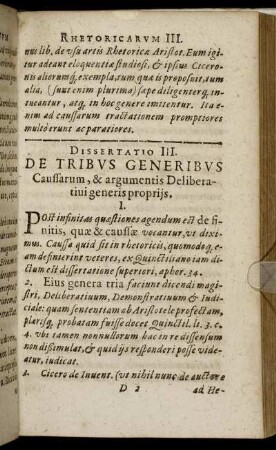 RHETORICARVM III.
nus lib. de vsu artis Rhetoricæ Aristot. Eum igi
tur adeant eloquentiæ studiosi, & ipsius Cicero-
nis aliorumq́; exempla, tum quæ is proposuit, tum
alia, (sunt enim plurima) sæpe diligenterq́; in-
tueantur, atq́; in hoc genere imitentur. Ita e-
nim ad caussarum tractationem promptiores
multò erunt ac paratiores.
DISSERTATIO III.
DE TRIBVS GENERIBVS
Caussarum, & argumentis Delibera-
tiui generis proprijs.
I.
POst infinitas quæstiones agendum est de fi-
nitis, quæ & caussæ vocantur, vt dixi-
mus. Caussa quid sit in rhetoricis, quomodoq́; e-
am definierint veteres, ex Quinctiliano iam di-
ctum est dissertatione superiori, aphor. 34.
2. Eius genera tria faciunt dicendi magi-
stri, Deliberatiuum, Demonstratiuum & Iudi-
ciale: quam sententiam ab Aristotele profectam,
plarisq́; probatam fuisse docet Quinctil. l. 3. c.
4. vbi tamen nonnullorum hac in re dissensum
non dissimulat, & quid ijs responderi posse vide-
atur, iudicat.
3. Cicero de Inuent. (vt nihil nunc de auctore
D 2 ad He-